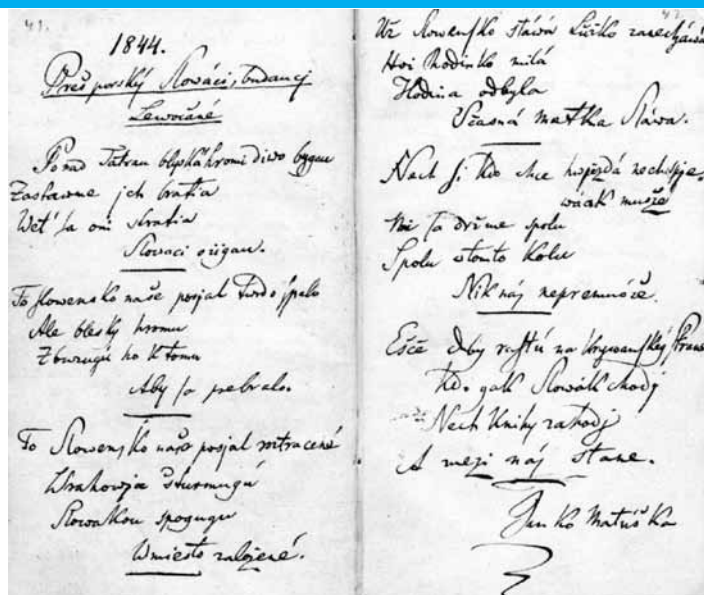 1844.
Prešporský Slováci, budaucj
Lewočané
Ponad Tatrau blyská hromi diwo bygau
Zastawme jch bratia
Wet' sa oni stratia
Slowaci ožigau.
To slowensko naše posjal twrdo spalo
Ale blesky hromu
Zburugu ho k tomu
Aby sa prebralo.
To Slowensko naše posjal
Wrahowja šturmugú
Slowákou spogugu
W miesto založené.
42.
Už Slowensko stáwá zanecháwá
Hoi Rodinko milá
Hodina odbyla
Včasná matka Sláwa.
Nech si kdo chce

Mi sa držme spolu
Spolu wtomto kolu
Nik náj nepremuože.
Ešče rastú na strane
gak Slowák chodj
Nech Knihy zahodj
A mezi náj stane.
Janko Matúška